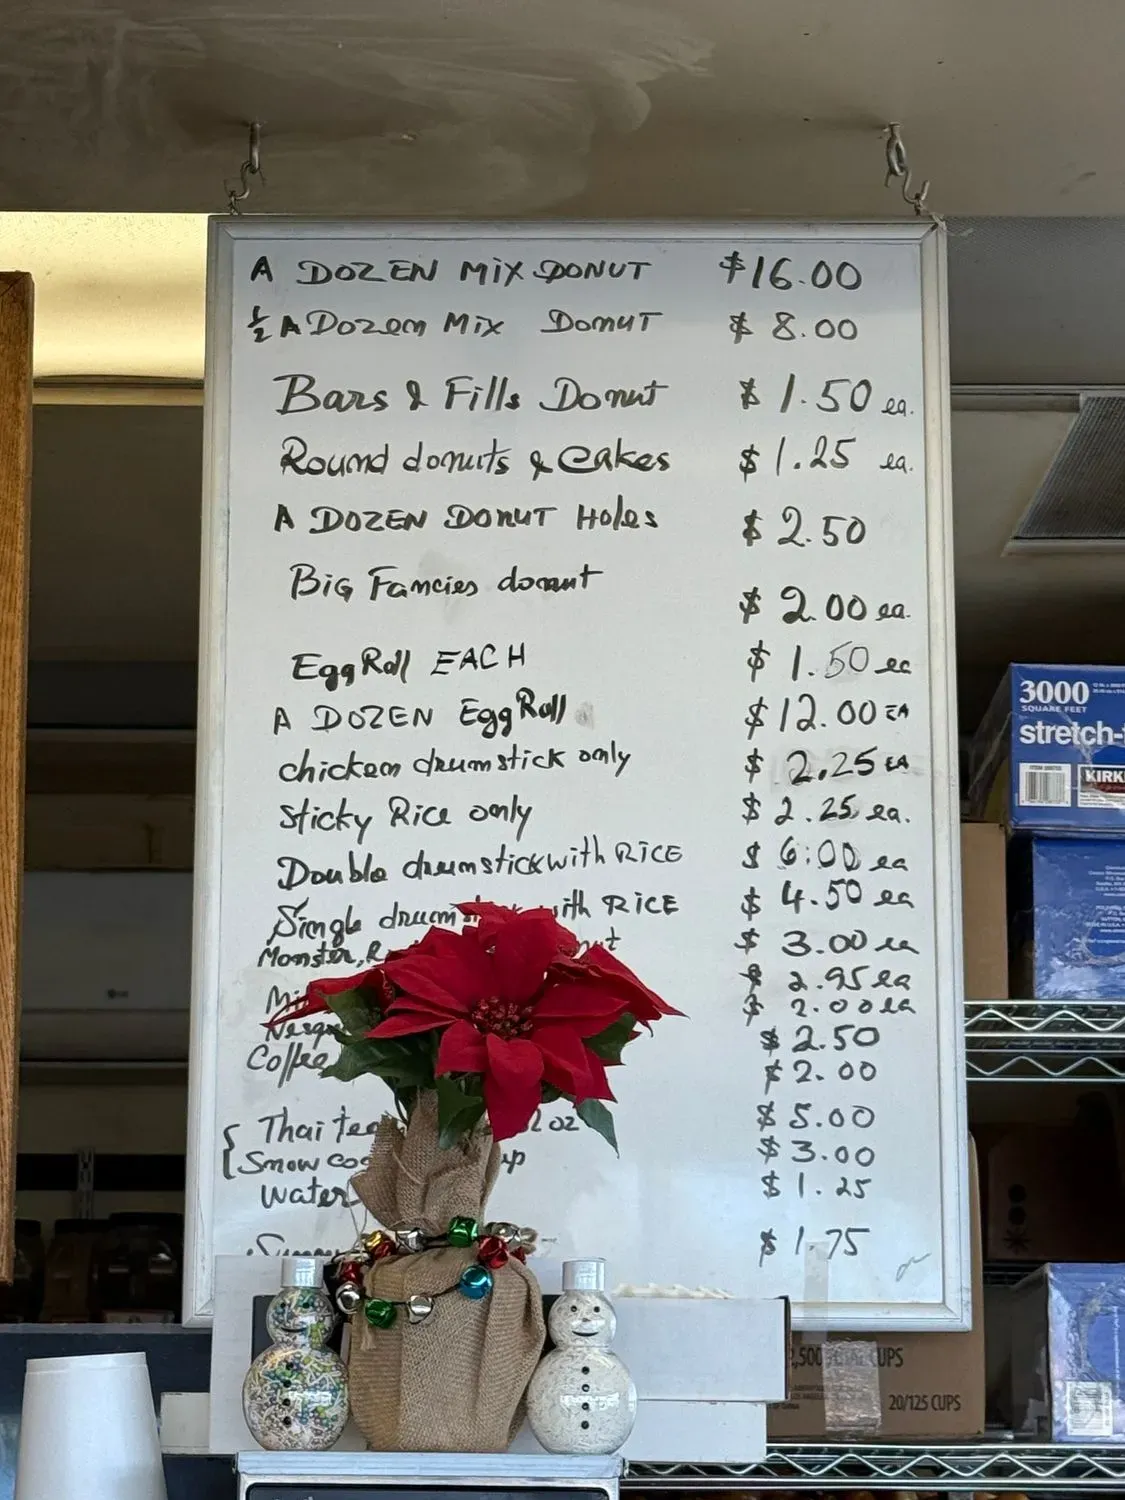 A DOZEN MIX DONUT $16.00
½ A Dozen Mix Donut $8.00
Bars & Fills Donut $1.50 ea.
Round donuts & Cakes $1.25 ea.
A DOZEN DONUT Holes $2.50
Big Fancies donut $2.00 ea.
Egg Roll EACH $1.50 ea
A DOZEN Egg Roll $12.00 EA
chicken drumstick only $2.25 EA
Sticky Rice only $2.25 ea.
Double drumstick with RICE $6:00 ea
Single with RICE $4.50 ea
Monster, $3.00 ea
$2.95 ea
$2.00 ea
$2.50
Coffee $2.00
Thai tea 2 oz $5.00
Snow $3.00
Water $1.25
$1.75
3000
SQUARE FEET
stretch-
KIRK
CUPS
20/125 CUPS